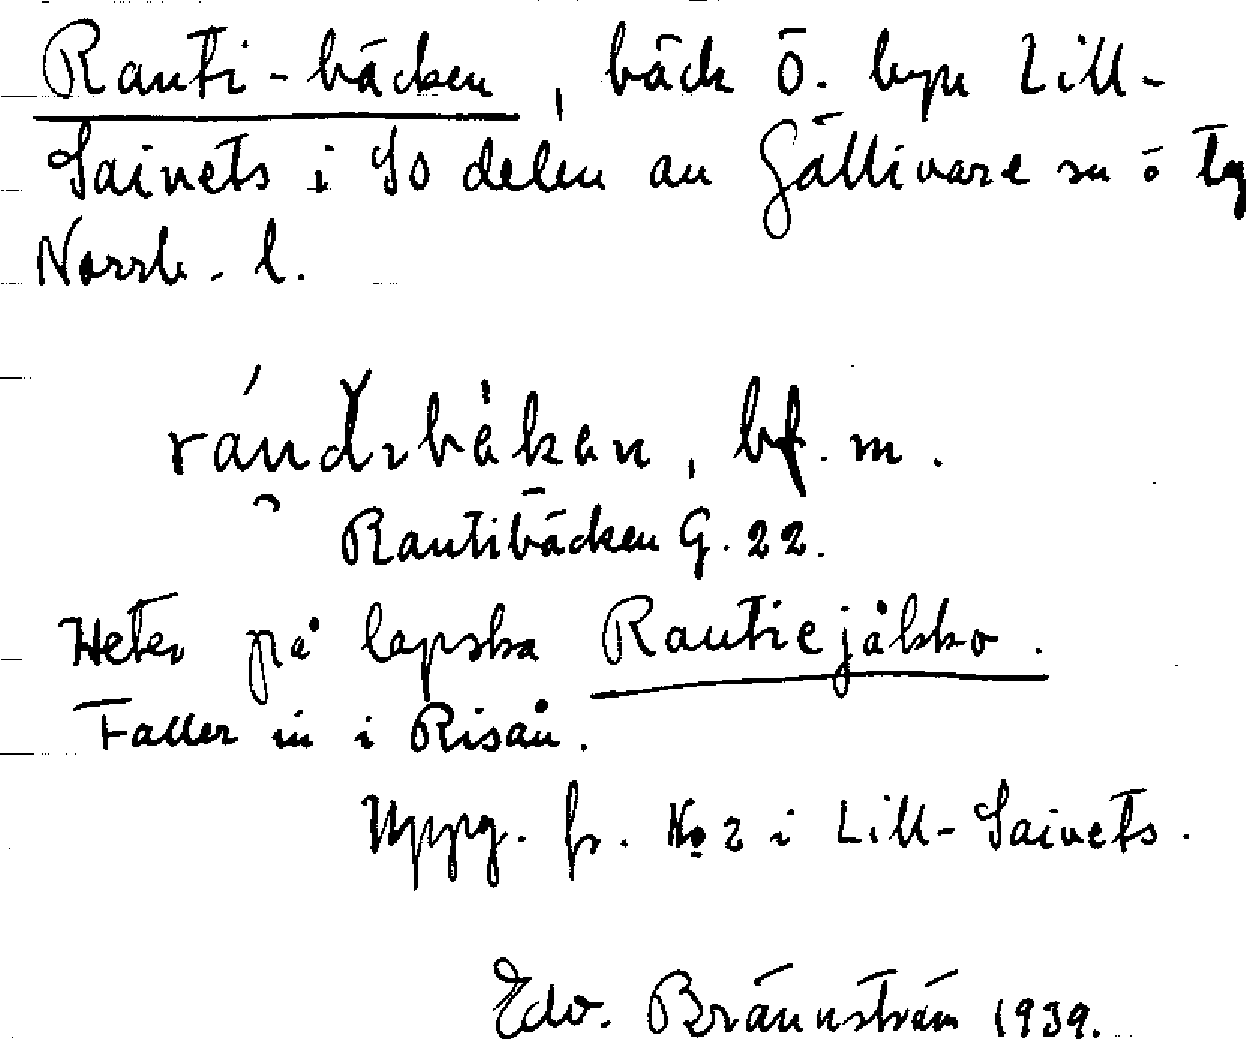 Rauti-bäcken, bäck Ö. byn Lill-
Saivets i SO delen av Gällivare sn o tg
Norrb. l.
bf. m.
Rautibäcken G. 22.
Heter på lapska Rautiejåkko.
Faller in i Risån.
Uppg. fr. No 2 i Lill-Saivets.
Edv. Brännström 1939.